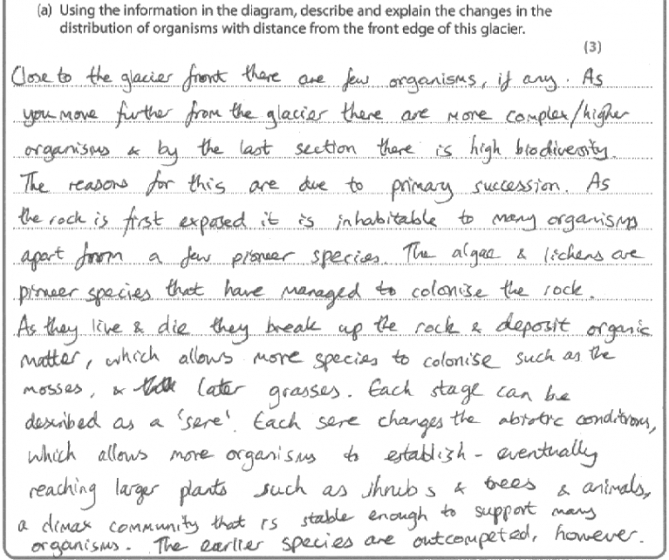 (a) Using the information in the diagram, describe and explain the changes in the
distribution of organisms with distance from the front edge of this glacier.
(3)
Close to the glacier front there are few organisms, if any. As
you move further from the glacier there are more complex/higher
organisms & by the last section there is high biodiversity.
The reasons for this are due to primary succession. As
the rock is first exposed it is inhabitable to many organisms
apart from a few pioneer species. The algae & lichens are
pioneer species that have managed to colonise the rock.
As they live & die they break up the rock & deposit organic
matter, which allows more species to colonise such as the
mosses, & later grasses. Each stage can be
described as a 'sere'. Each sere changes the abiotic conditions,
which allows more organisms to establish - eventually
reaching larger plants such as shrubs & trees & animals,
a climax community that is stable enough to support many
organisms. The earlier species are outcompeted, however.